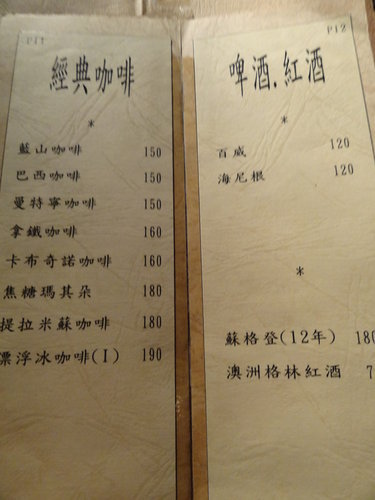 P11
經典咖啡
*
藍山咖啡 150
巴西咖啡 150
曼特寧咖啡 150
拿鐵咖啡 160
卡布奇諾咖啡 160
焦糖瑪其朵 180
提拉米蘇咖啡 180
漂浮冰咖啡(I) 190
P12
啤酒.紅酒
*
百威 120
海尼根 120
*
蘇格登(12年) 180
澳洲格林紅酒